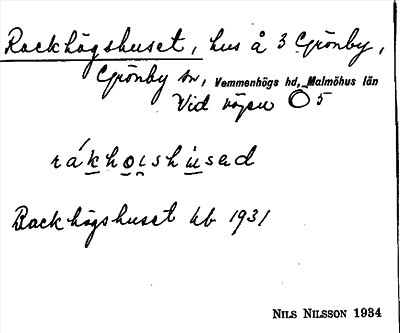 Rackhögshuset, hus å 3 Grönby,
Grönby sn, Vemmenhögs hd, Malmöhus län
Vid vägen Ö 5
rákhoıshùsəd
Backhögshuset kb 1931
NILS NILSSON 1934